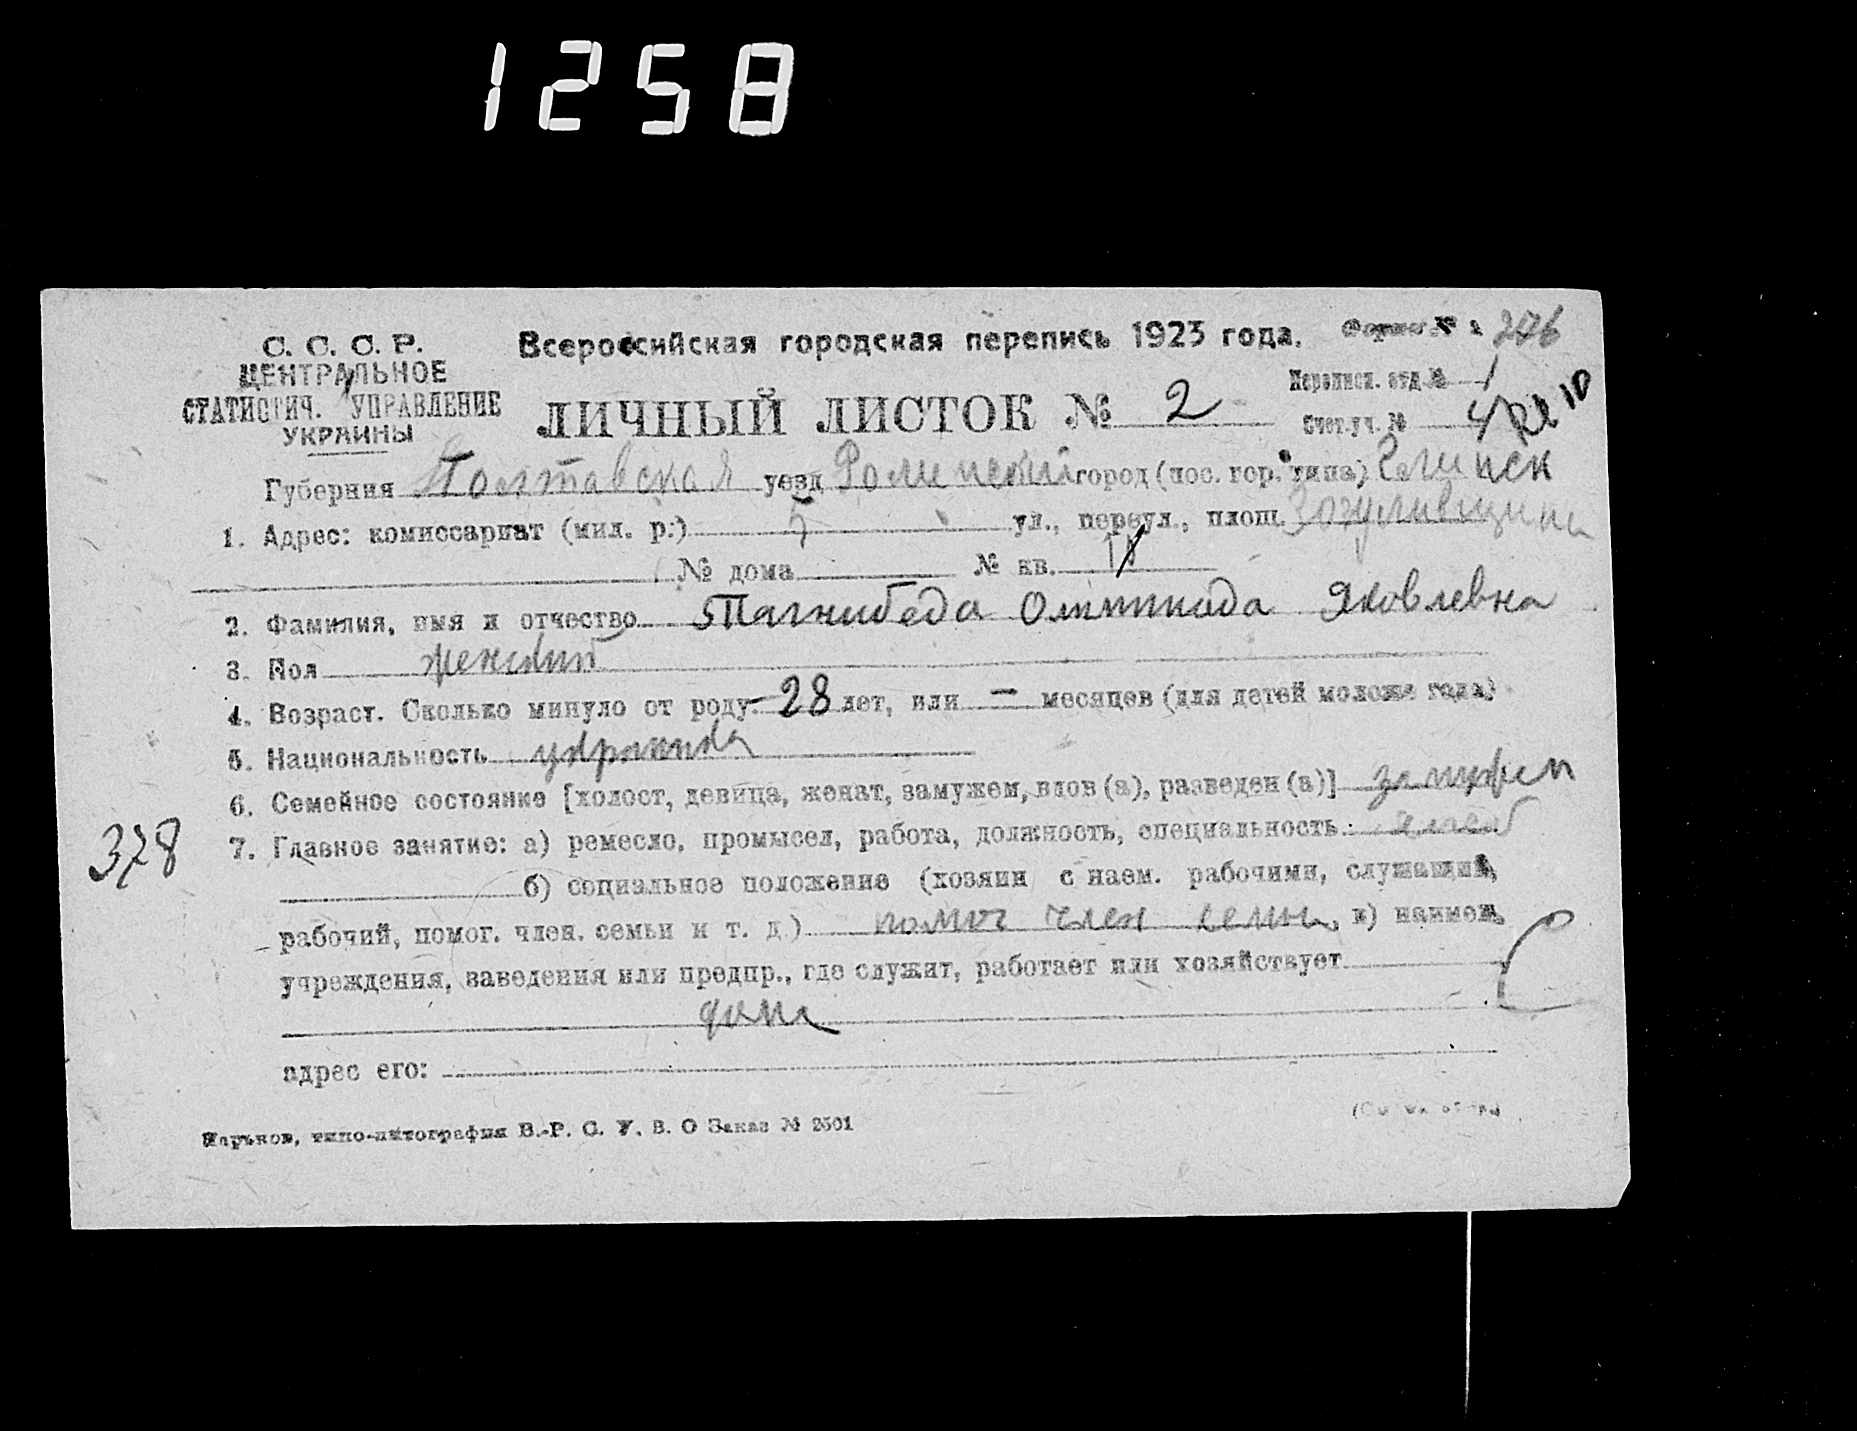 1258
С. С. С. Р.
ЦЕНТРАЛЬНОЕ
СТАТИСТИЧ. УПРАВЛЕНИЕ
УКРАИНЫ
Всероссийская городская перепись 1923 года.
Форма № 2 276
ЛИЧНЫЙ ЛИСТОК № 2
Переписн. отд. № 1
Счет. уч. № 4
Губерния Полтавская уезд Роменский город (пос. гор. типа)
1. Адрес: комиссариат (мил. р.) 5 ул., переул., площ.
№ дома № кв.
2. Фамилия, имя и отчество Тягнибеда Олимпиада Яковлевна
3. Пол женский
4. Возраст. Сколько минуло от роду. 28 лет, или — месяцев (для детей моложе года)
5. Национальность украинка
6. Семейное состояние [холост, девица, женат, замужем, вдов (а), разведен (а)] замужем
378
7. Главное занятие: а) ремесло, промысел, работа, должность, специальность:
б) социальное положение (хозяин с наем. рабочими, служащий,
рабочий, помог. член. семьи и т. д.) помог член семьи, в) наимен.
учреждения, заведения или предпр., где служит, работает или хозяйствует
дома
адрес его:
Харьков, типо-литография В.-Р. С. У. В. О Заказ № 2501